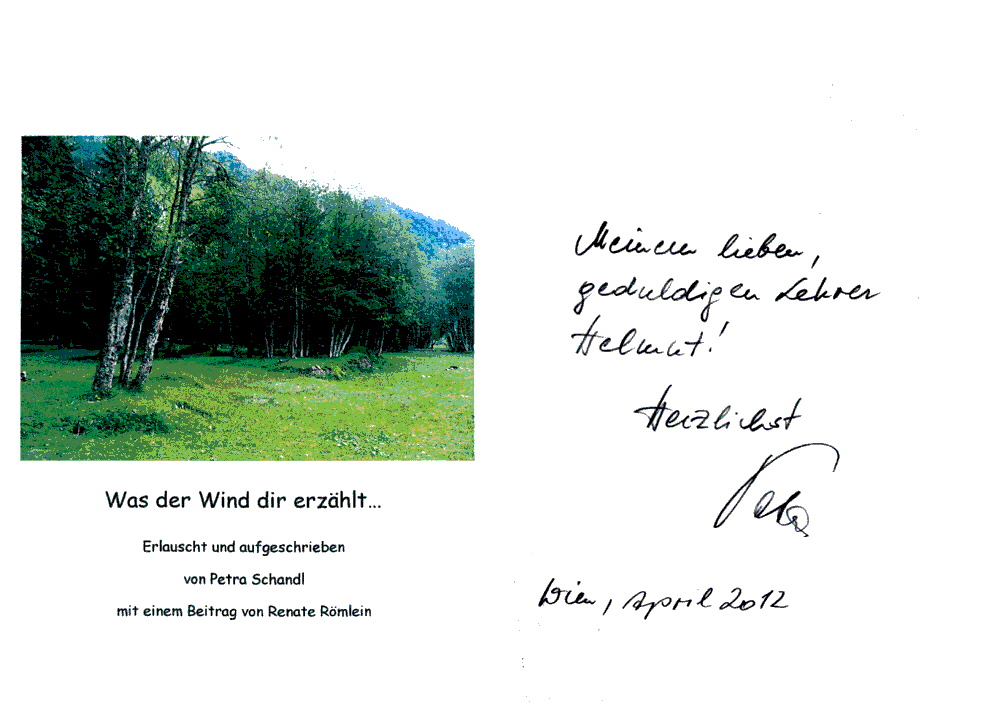 Was der Wind dir erzählt...
Erlauscht und aufgeschrieben
von Petra Schandl
mit einem Beitrag von Renate Römlein
Meinem lieben,
geduldigen Lehrer
Helmut!
Herzlichst
Petra
Wien, April 2012